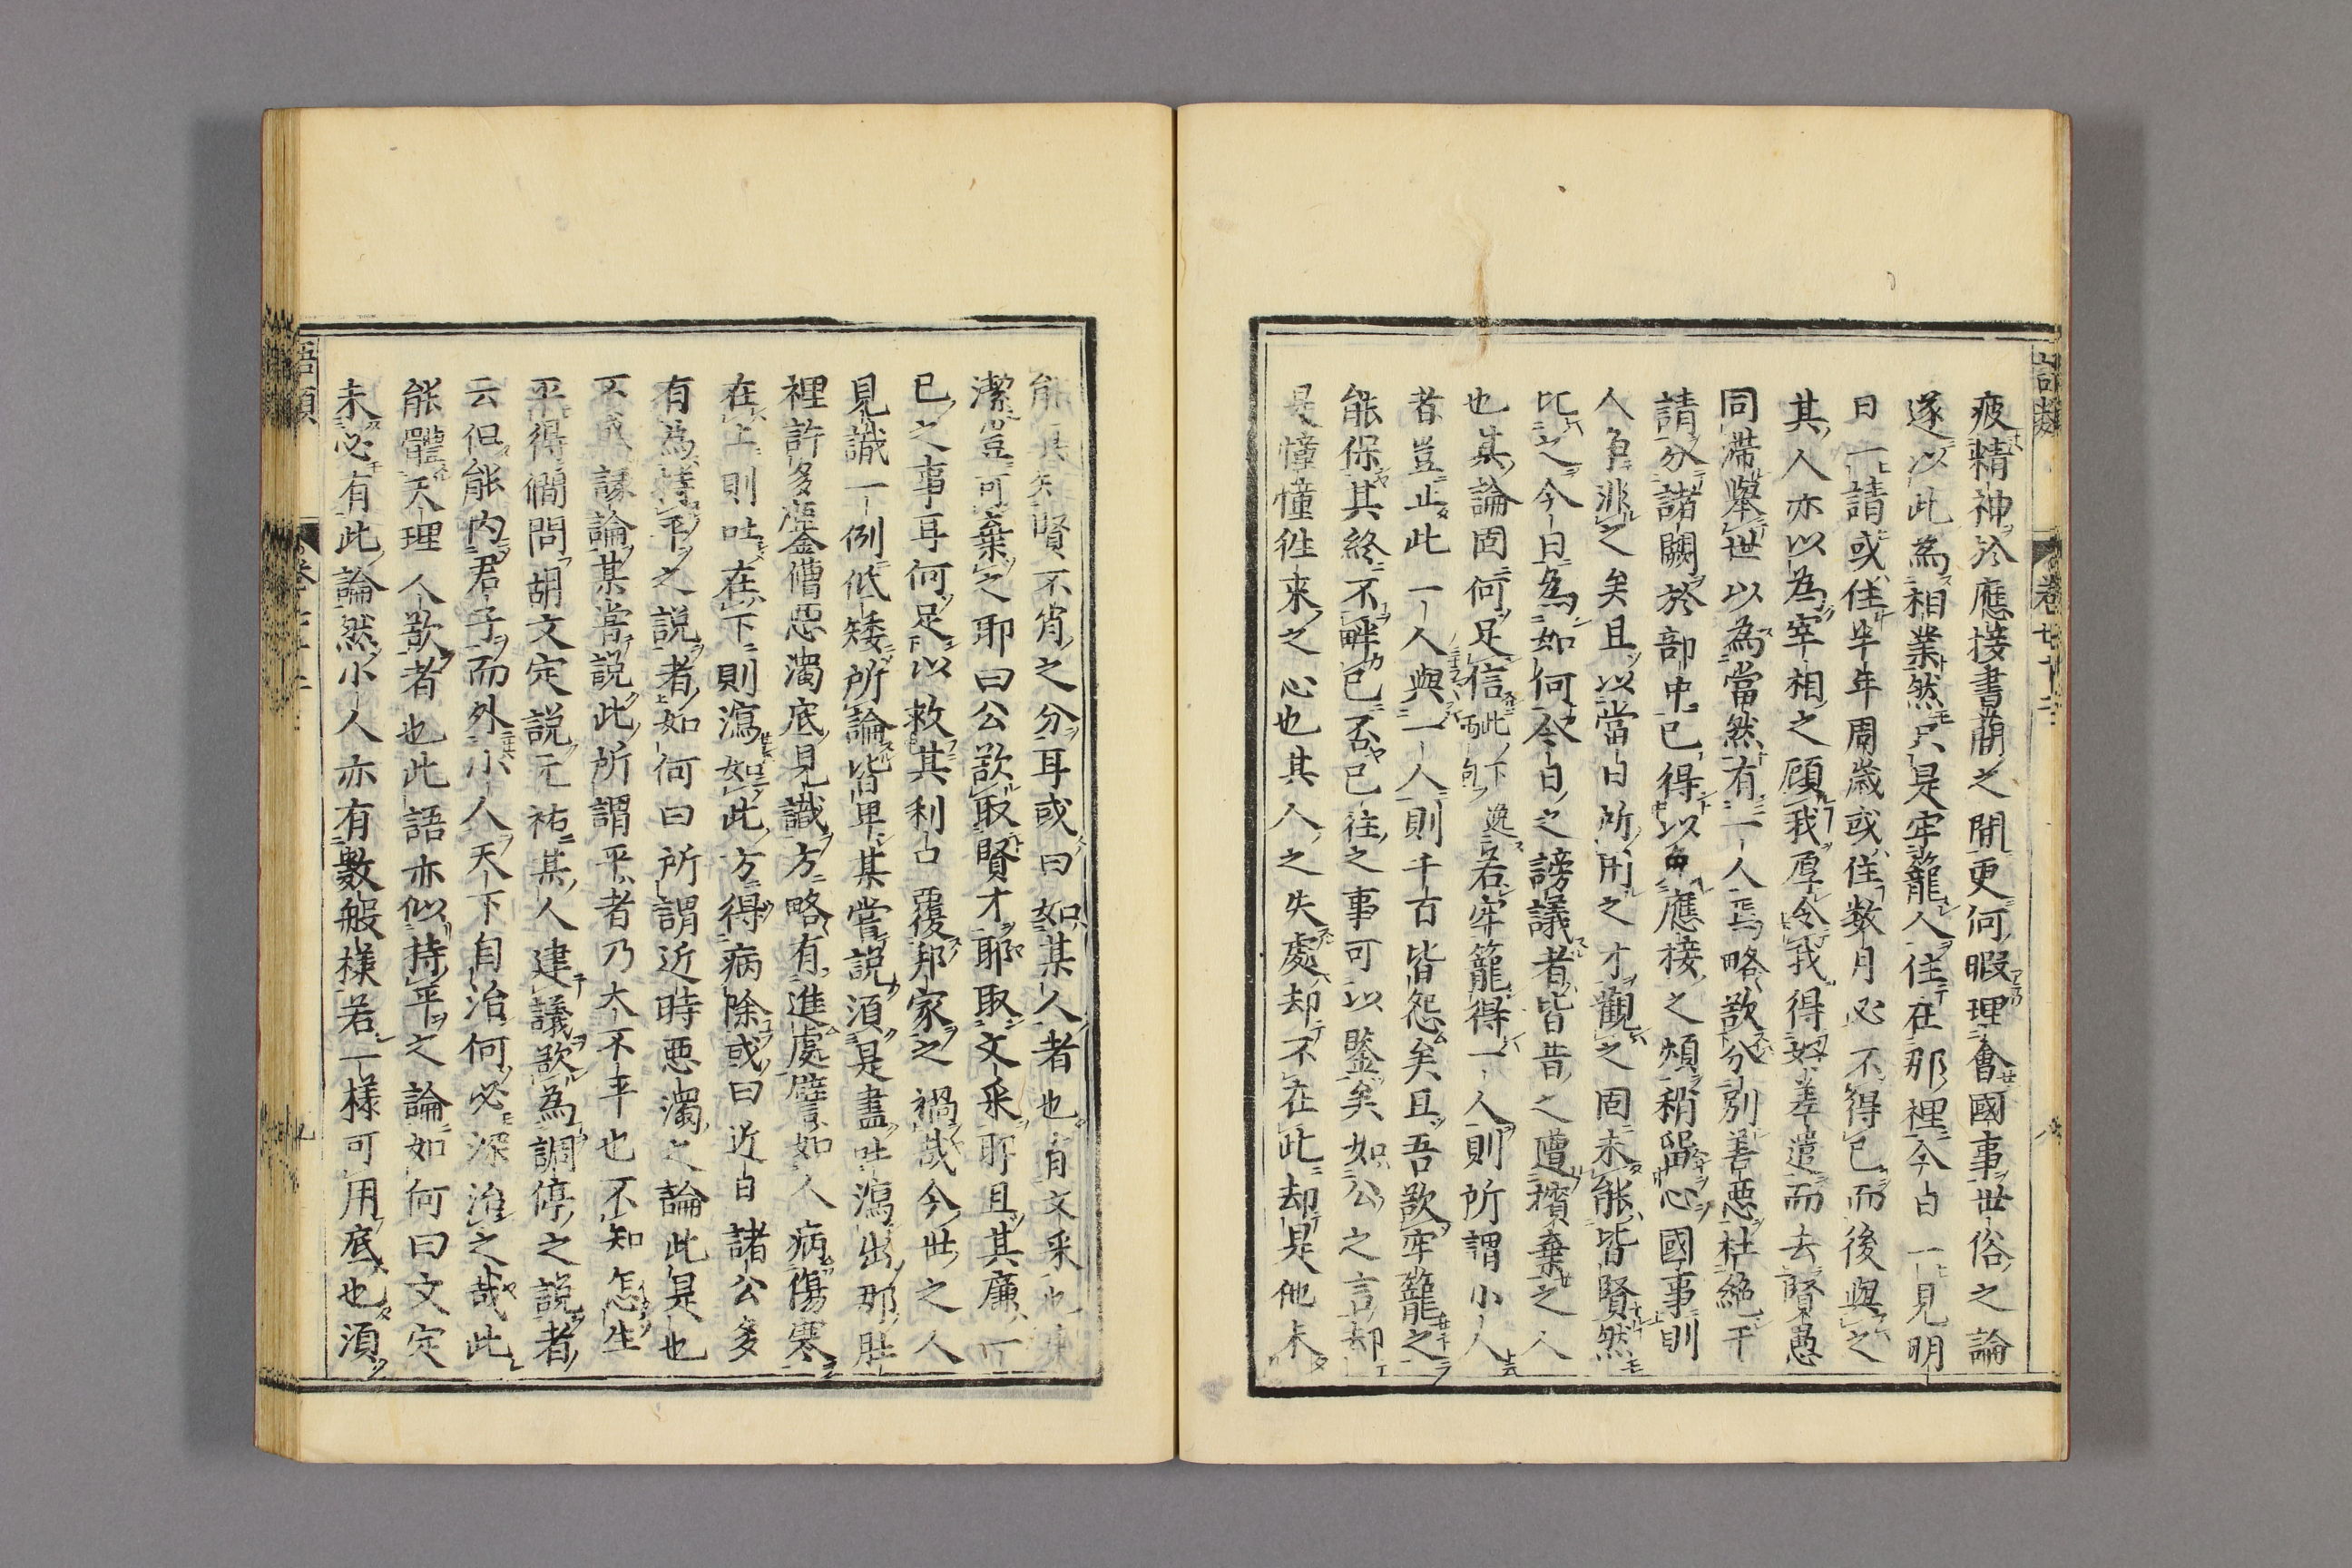 疲精神於應接書蕑之間更何暇理會國事世俗之論
遂以此為相業然只是牢籠人住在那裡今日一見明
日一請或住半年周歲或住数月必不得已而後與之
其人亦以為宰相之顧我厚令我得好差遣而去賢愚
同滯舉世以為當然有一人焉略欲分别善惡杜絶干
請分諸闕於部中已得以免應接之煩稍留心國事則
人爭非之矣且以當日所用之才觀之固未能皆賢然
比之今日為如何今日之謗議者皆昔之遭擯棄之人
也其論固何足信此下逸兩句若牢籠得一人則所謂小人
者豈止此一人與一人則千百皆怨矣且吾欲牢籠之
能保其終不畔己否已往之事可以鑒矣如公之言却
是憧憧徃来之心也其人之失處却不在此却是他未
能眞知賢不肖之分耳或曰如某人者也有文采也
潔豈可棄之耶曰公欲取賢才耶取文采耶且其廉一
已之事耳何足以救其利口覆邦家之禍哉今世之人
見識一例低矮所論皆卑某嘗說須是盡吐瀉出那肚
裡許多鏖糟惡濁底見識方略有進處譬如人病傷寒
在上則吐在下則瀉如此方得病除或曰近日諸公多
有為持平之說者如何曰所謂近時惡濁之論此是也
不成議論某嘗說此所謂平者乃大不平也不知怎生
平得僩問胡文定說元祐某人建議欲為調停之說者
云但能内君子而外小人天下自治何必深治之哉此
能體天理人欲者也此語亦似持平之論如何曰文定
未必有此論然小人亦有數般樣若一樣可用底也須